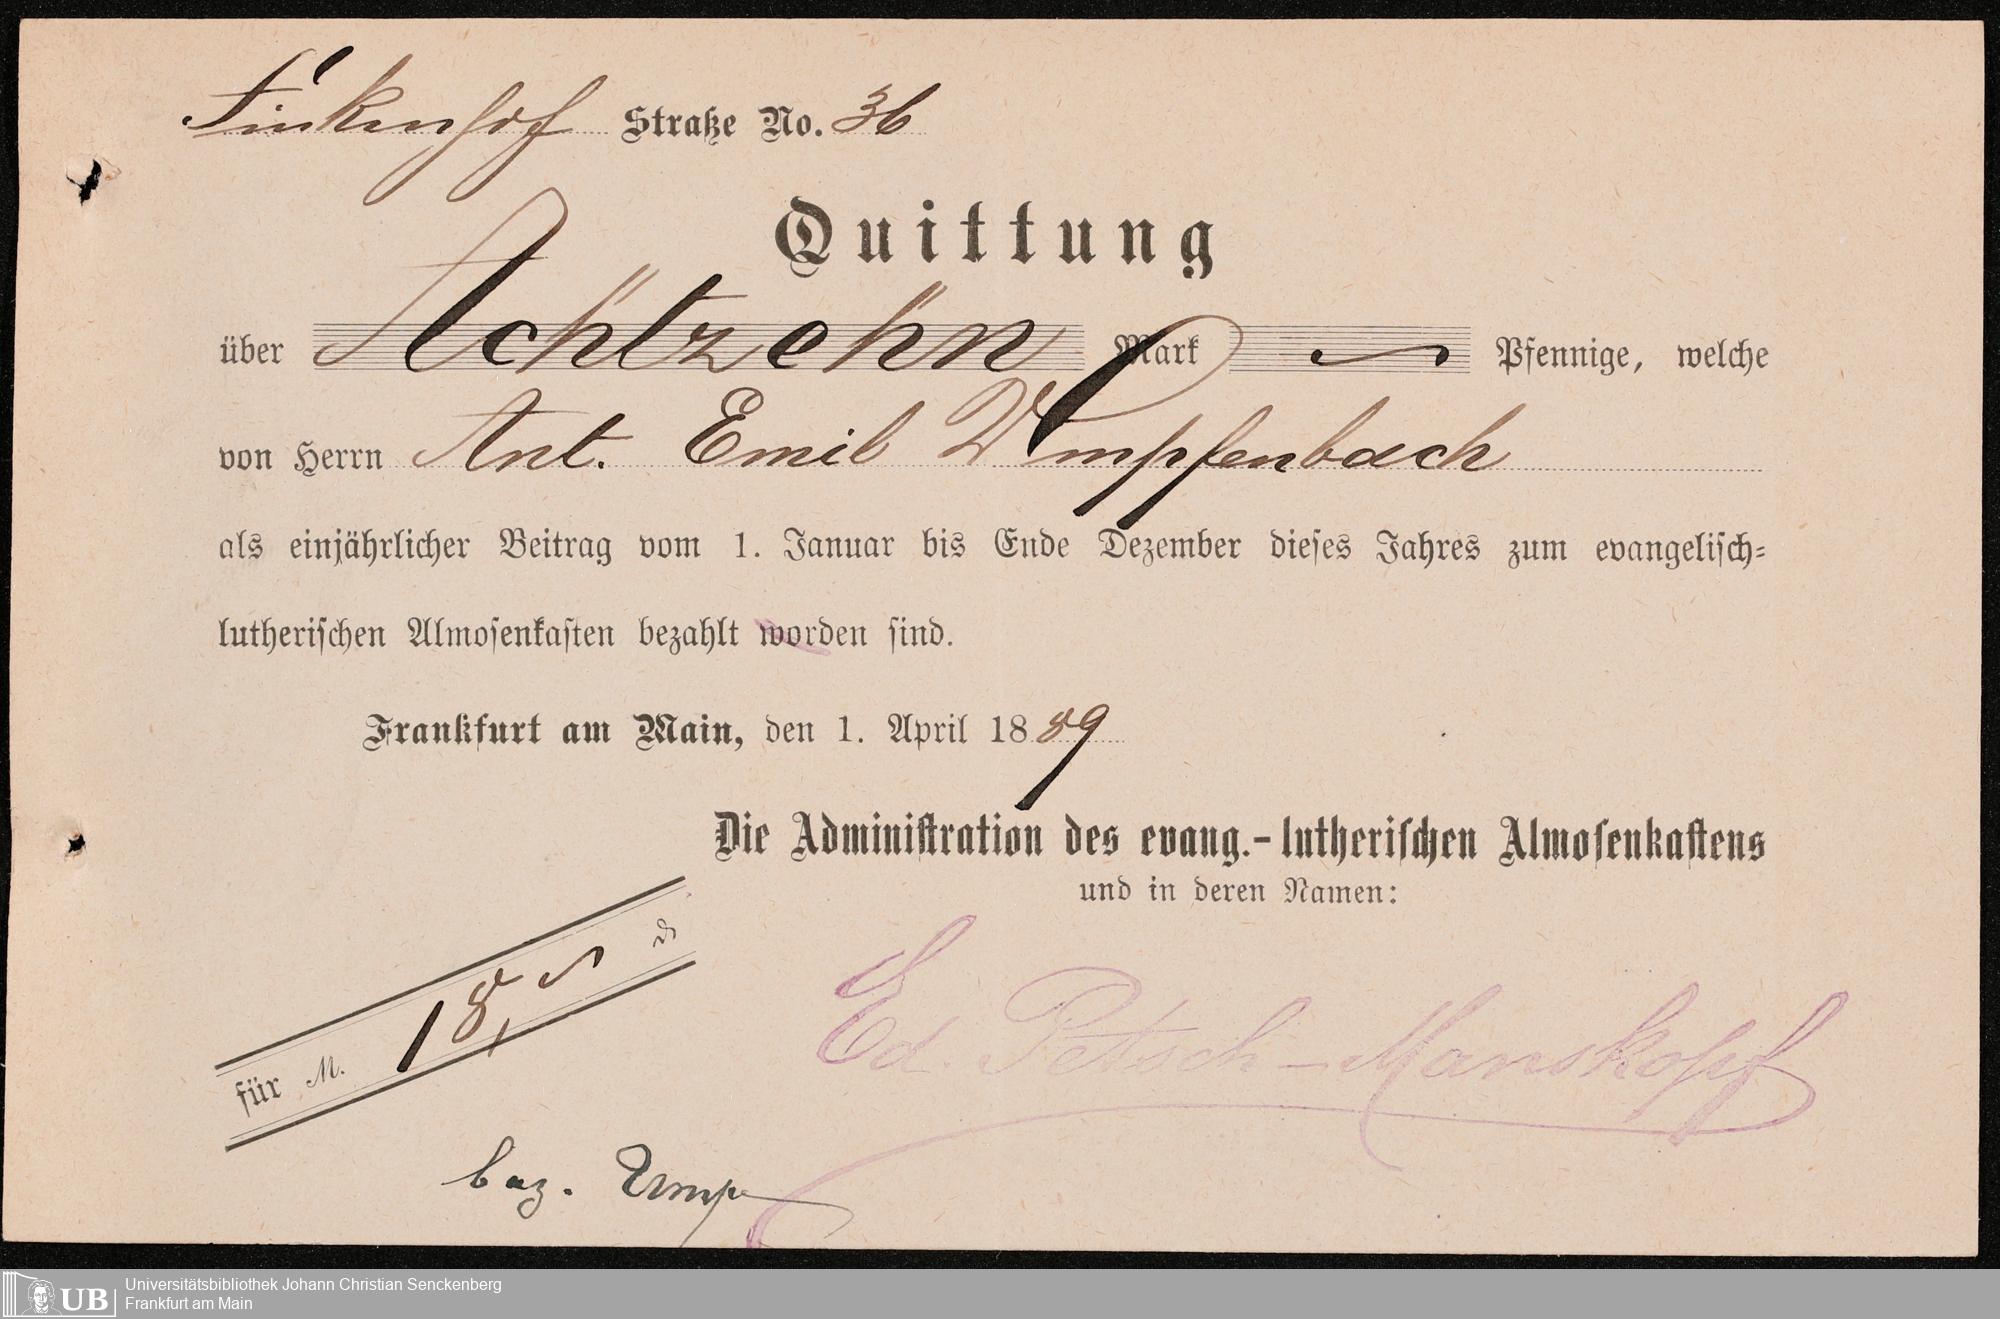 Finkenhof Straße No. 36
Quittung
über Achtzehn Mark Pfennige, welche
von Herrn Ant. Emil Wempfenbach
als einjährlicher Beitrag vom 1. Januar bis Ende Dezember dieses Jahres zum evangelisch-
lutherischen Almosenkasten bezahlt worden sind.
Frankfurt am Main, den 1. April 1889
Die Administration des evang.-lutherischen Almosenkastens
und in deren Namen:
für M. 18,
Ed. Petsch-Manskopf
bez.
UB Universitätsbibliothek Johann Christian Senckenberg
Frankfurt am Main